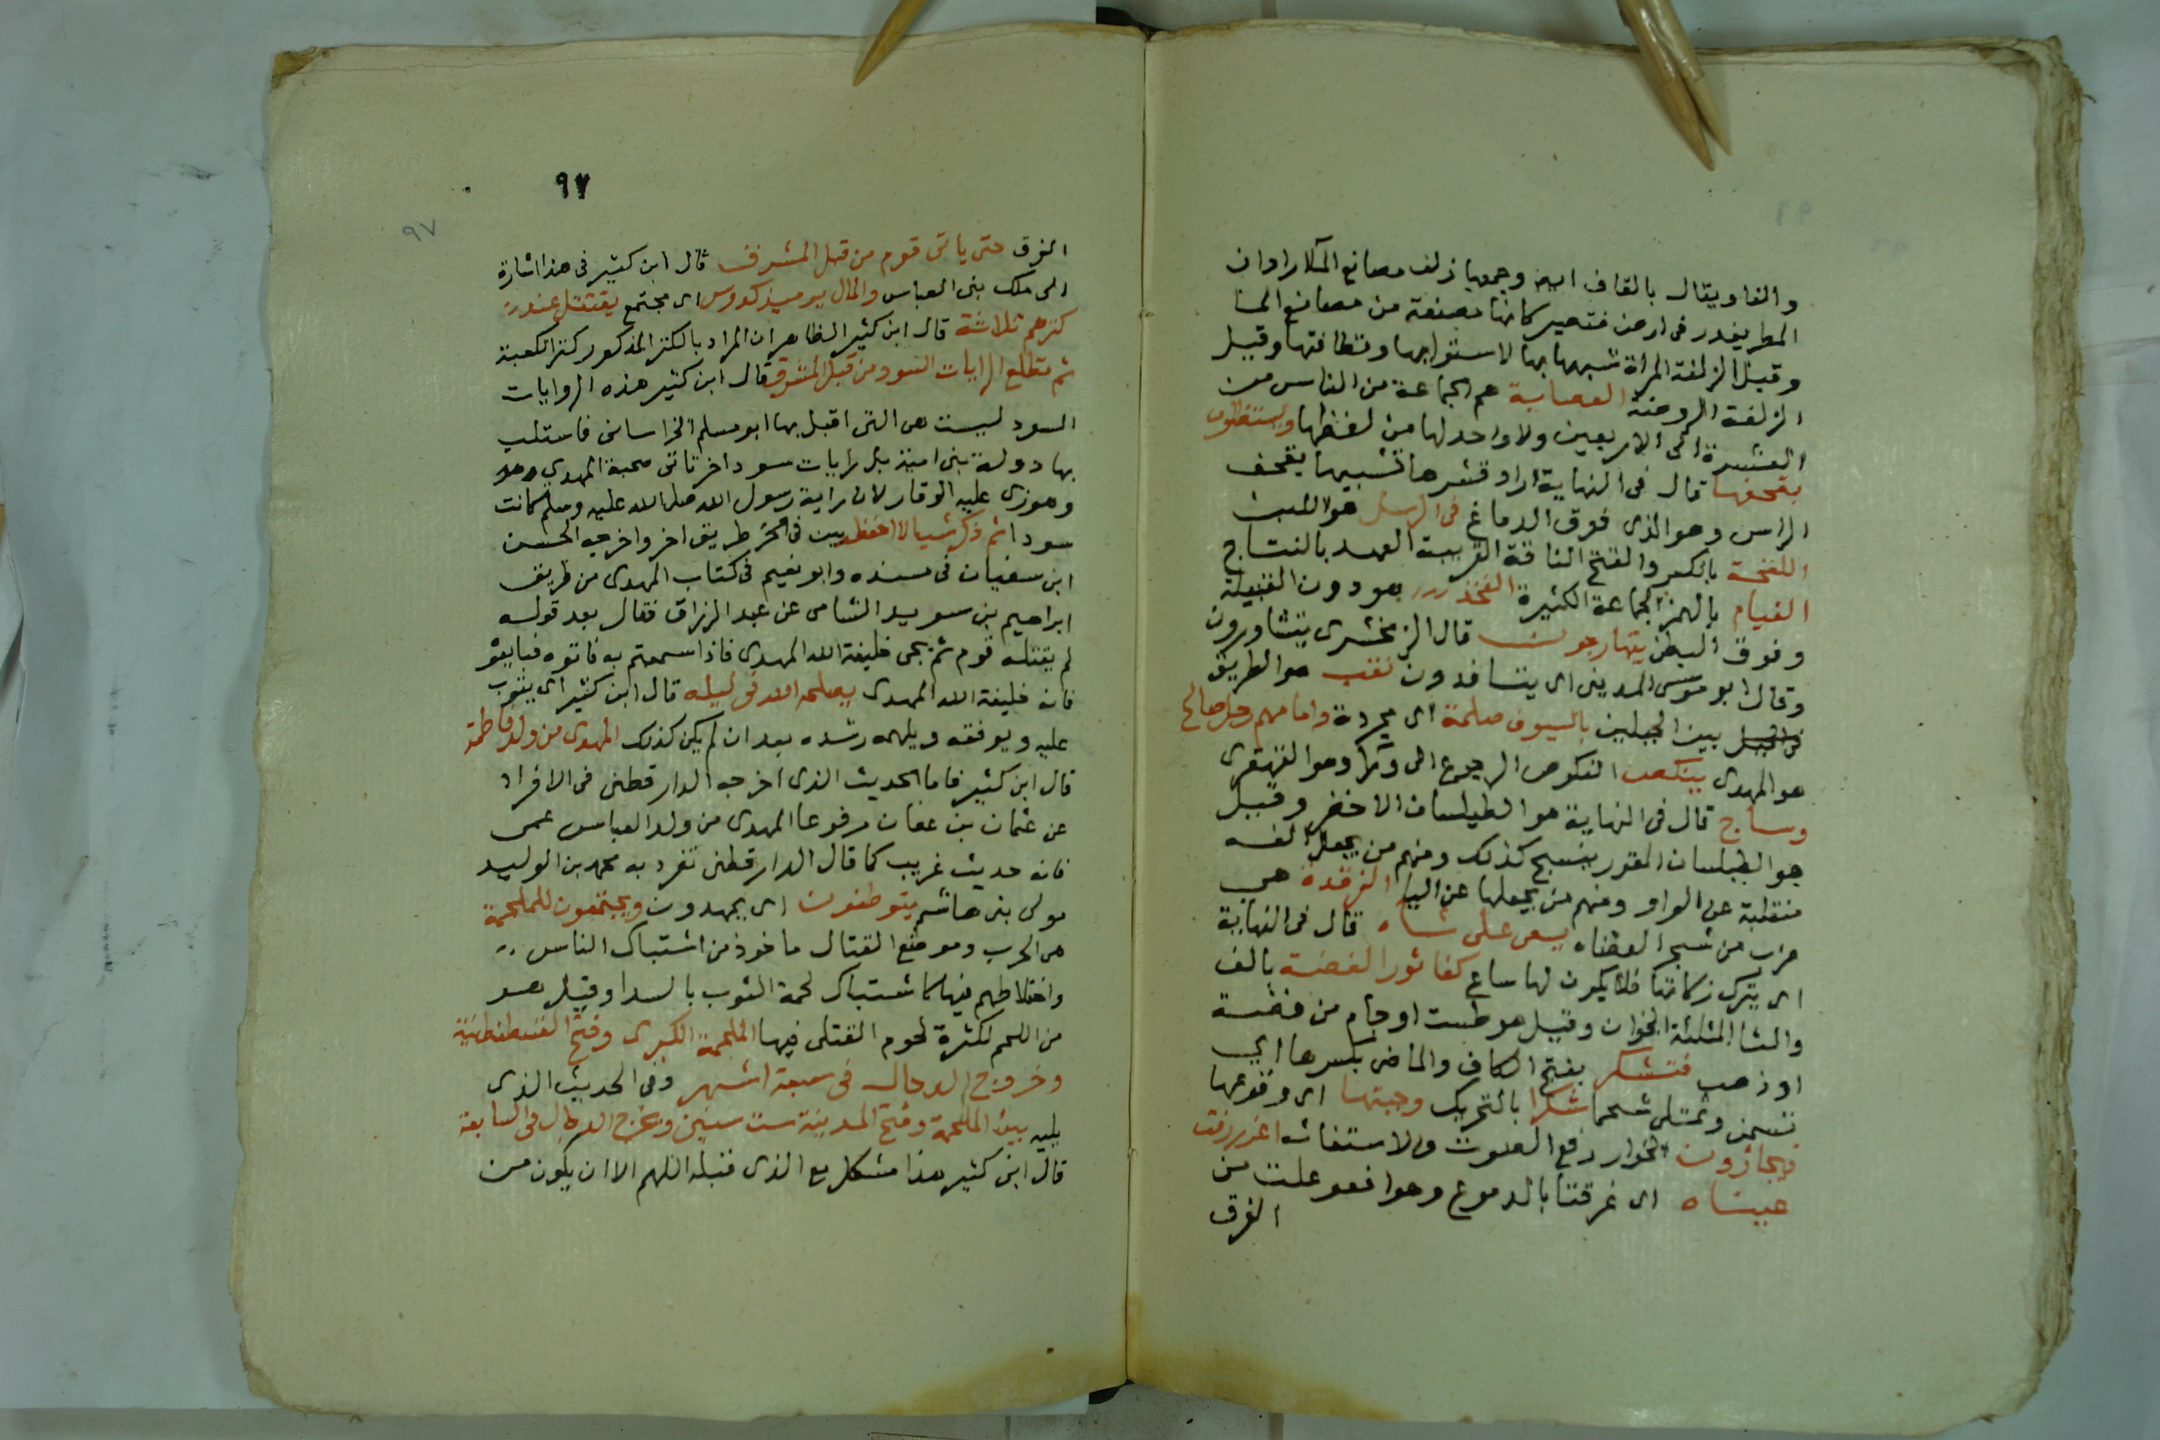 والفا ويقال بالقاف ايض وجمعها زلف مصانع المآ اراد ان
المطر يغدر فى ارض فتصير كانها مصنعة من مصانع الما
وقيل الزلفة المرأة شبهها بها لاستوايها ونظافتها وقيل
الزلفة الروضة العصابة هم الجماعة من الناس من
العشرة الى الاربعين ولا واحد لها من لفظها ويستظلون
بقحفها قال فى النهاية اراد قشرها تشبيها بقحف
الراس وهو الذى فوق الدماغ فى الرسل هو اللبن
اللقحة بالكسر والفتح الناقة القريبة العهد بالنتاج
الفيام بالهمز الجماعة الكثيرة الفخذ هو دون القبيلة
وفوق البطن يتهارجون قال الزمخشرى يتشاورون
وقال ابو موسى المدينى اى يتسافدون نقب هو الطريق
بين الجبلين بالسيوف صلتة اى مجردة وامامهم رجل صالح
هو المهدى ينكص النكوص الرجوع الى ورآ وهو القهقرى
وساج قال فى النهاية هو الطيلسان الاخضر وقيل
هو الطيلسان المقور ينسج كذلك ومنهم من يجعل الفه
منقلبة عن الواو ومنهم من يجعلها عن اليا الغرقدة هى
ضرب من شجر العضاه يسعى على شاه قال فى النهاية
اى يترك زكاتها فلا يكون لها ساع كفاثور الفضة بالفا
والثا المثلثة الخوان وقيل هو طست او جام من فضة
او ذهب فتشكر بفتح الكاف والماضى بكسرها اي
تسمن وتمتلى شحما شكرا بالتحريك وجبتها اى وقوعها
فيجأرون الخوار رفع الصوت والاستغاثه اغرورقت
عيناه اى غرقتا بالدموع وهو افعوعلت من
الغرق
٩٧
٩٧
الغرق حتى ياتى قوم من قبل المشرق قال ابن كثير فى هذا اشارة
الى ملك بنى العباس والمال يوميذ كدوس اى مجتمع يقتتل عند
كنزهم ثلاثة قال ابن كثير الظاهر ان المراد بالكنز المذكور كنز الكعبة
ثم تطلع الرايات السود من قبل المشرق قال ابن كثير هذه الرايات
السود ليست هى التى اقبل بها ابو مسلم الخراسانى فاستلب
بها دولة بنى امية بل رايات سود اخر تاتى صحبة المهدى وهو
وهوزى عليه الوقار لان راية رسول الله صلى الله عليه وسلم كانت
سودا ثم ذكر شيا لا احفظه بين فى الخر طريق اخر واخرجه الحسن
ابن سفيان فى مسنده وابو نعيم فى كتاب المهدى من طريق
ابراهيم بن سويد الشامى عن عبد الرزاق فقال بعد قوله
لم يقتله قوم ثم يجى خليفة الله المهدى فاذا سمعتم به فاتوه فبايعو
فانه خليفة الله المهدى يصلحه الله فى ليله قال ابن كثير اى يتوب
عليه ويوفقه ويلهمه رشده بعد ان لم يكن كذلك المهدى من ولد فاطمة
قال ابن كثير فاما الحديث الذى اخرجه الدارقطنى فى الافراد
عن عثمان بن عفان مرفوعا المهدى من ولد العباس عمى
فانه حديث غريب كما قال الدارقطنى تفرد به محمد بن الوليد
مولى بنى هاشم يتوطئون اى يمهدون ويجتمعون للملحمة
هى الحرب وموضع القتال ماخوذ من اشتباك الناس
واختلاطهم فيها كاشتباك لحمة الثوب بالسدا وقيل هو
من اللحم لكثرة لحوم القتلى فيها الملحمة الكبرى وفتح القسطنطينية
وخروج الدجال فى سبعة اشهر وفى الحديث الذى
يليه بين الملحمة وفتح المدينة ست سنين ويخرج الدجال فى السابعة
قال ابن كثير هذا مشكل مع الذى قبله اللهم الا ان يكون من